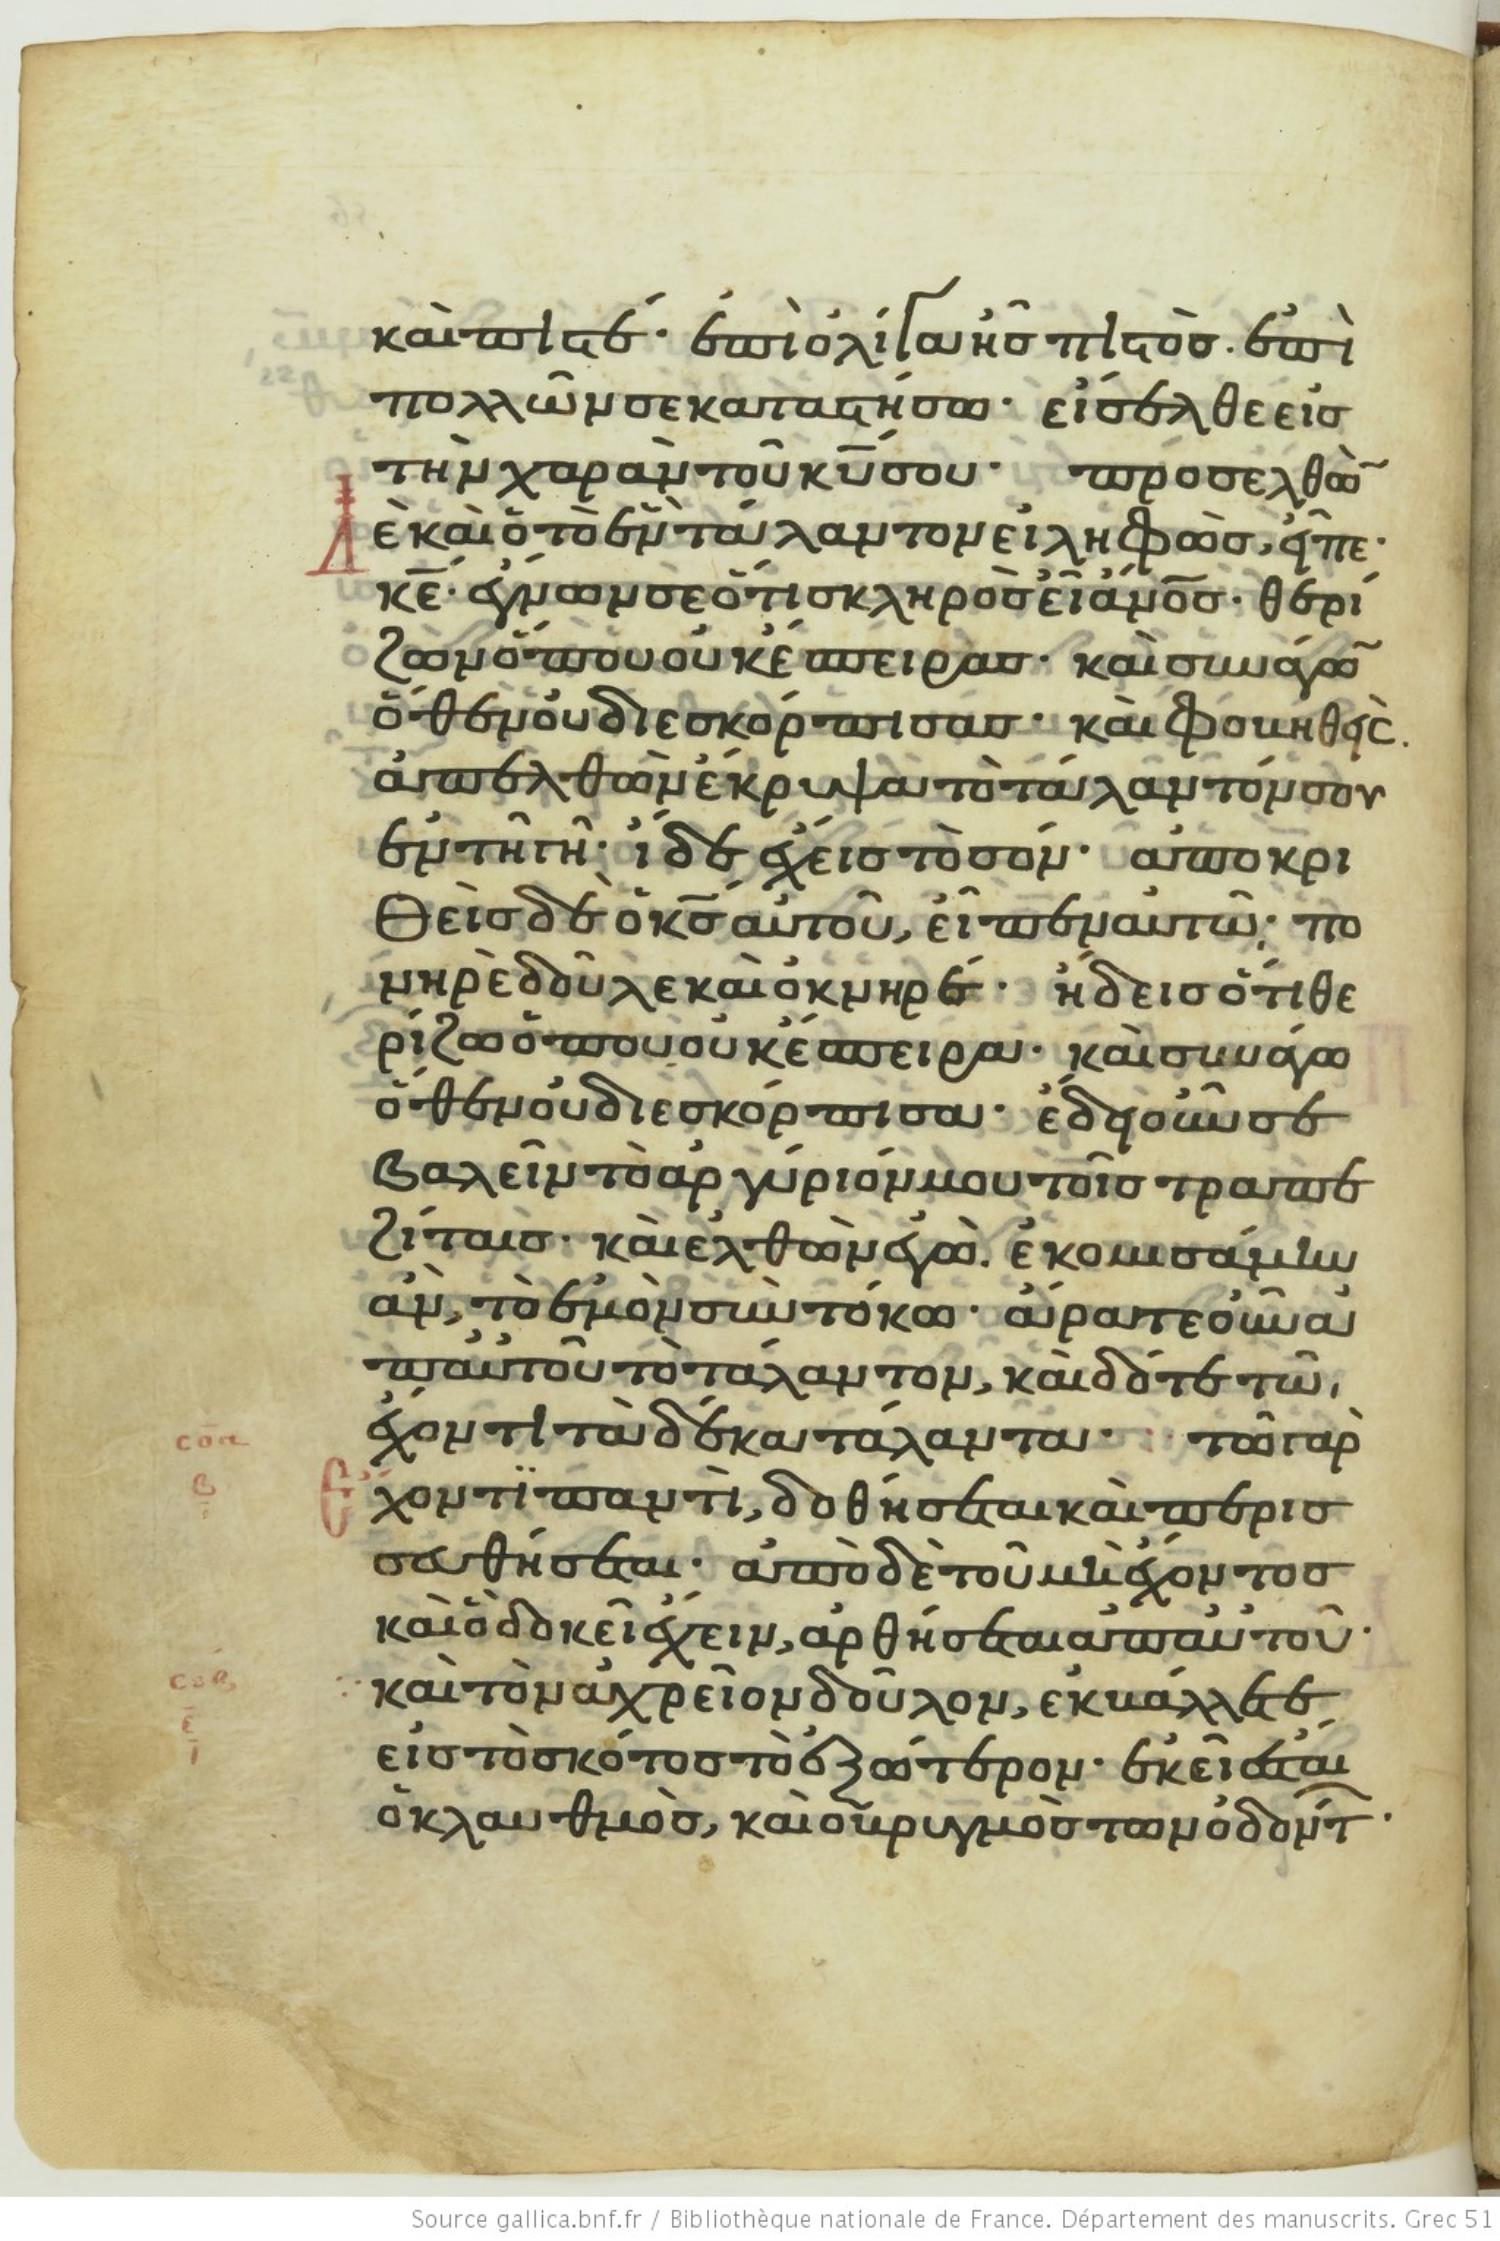 καὶ πιστέ· ἐπὶ ὀλίγα ἦς πιστὸς. ἐπὶ
πολλῶν σε καταστήσω· εἴσελθε εἰς
τὴν χαρὰν τοῦ κ̅υ̅ σου· προσελθὼ̅
Δὲ καὶ ὁ τὸ ἓν τάλαντον εἰληφὼς, εἶπε·
κ̅ε̅· ἔγνων σε ὅτι σκληρὸς εἶ ἄ̅ν̅ο̅ς̅· θερί
ζων ὅπου οὐκ ἔσπειρας· καὶ συνάγω̅
ὅθεν οὐ διεσκόρπισας· καὶ φοβηθεὶς.
ἀπελθὼν ἔκρυψα τὸ τάλαντόν σου
ἐν τῆ γῆ· ἰδὲ ἔχεις τὸ σόν· ἀποκρι
θεὶς δὲ ὁ κ̅ς̅ αὐτοῦ, εἶπεν αὐτῶ· πο
νηρὲ δοῦλε καὶ ὀκνηρέ· ἤδεις ὅτι θε
ρίζω ὅπου οὐκ ἔσπειρα· καὶ συνάγω
ὅθεν οὐ διεσκόρπισα· ἔδει οὖν σε
βαλεῖν τὸ ἀργύριόν μου τοῖς τραπε
ζίταις· καὶ ἐλθὼν ἐγὼ. ἐκομισάμην
ἂν, τὸ ἐμὸν σὺν τόκω· ἄρατε οὖν ἀ
π' αὐτοῦ τὸ τάλαντον, καὶ δότε τῶ,
ἔχοντι τὰ δέκα τάλαντα· τῶ γὰρ
Ἔχοντϊ παντὶ, δοθήσεται καὶ περισ
σευθήσεται· ἀπὸ δὲ τοῦ μὴ ἔχοντος
καὶ ὃ δοκεῖ ἔχειν, ἀρθήσεται ἀπ' αὐτοῦ·
καὶ τὸν ἀχρεῖον δοῦλον, ἐκβάλλετε
εἰς τὸ σκότος τὸ ἐξώτερον· ἐκεῖ ἔσται
ὁ κλαυθμὸς, καὶ ὁ βρυγμὸς τῶν ὀδόντ·